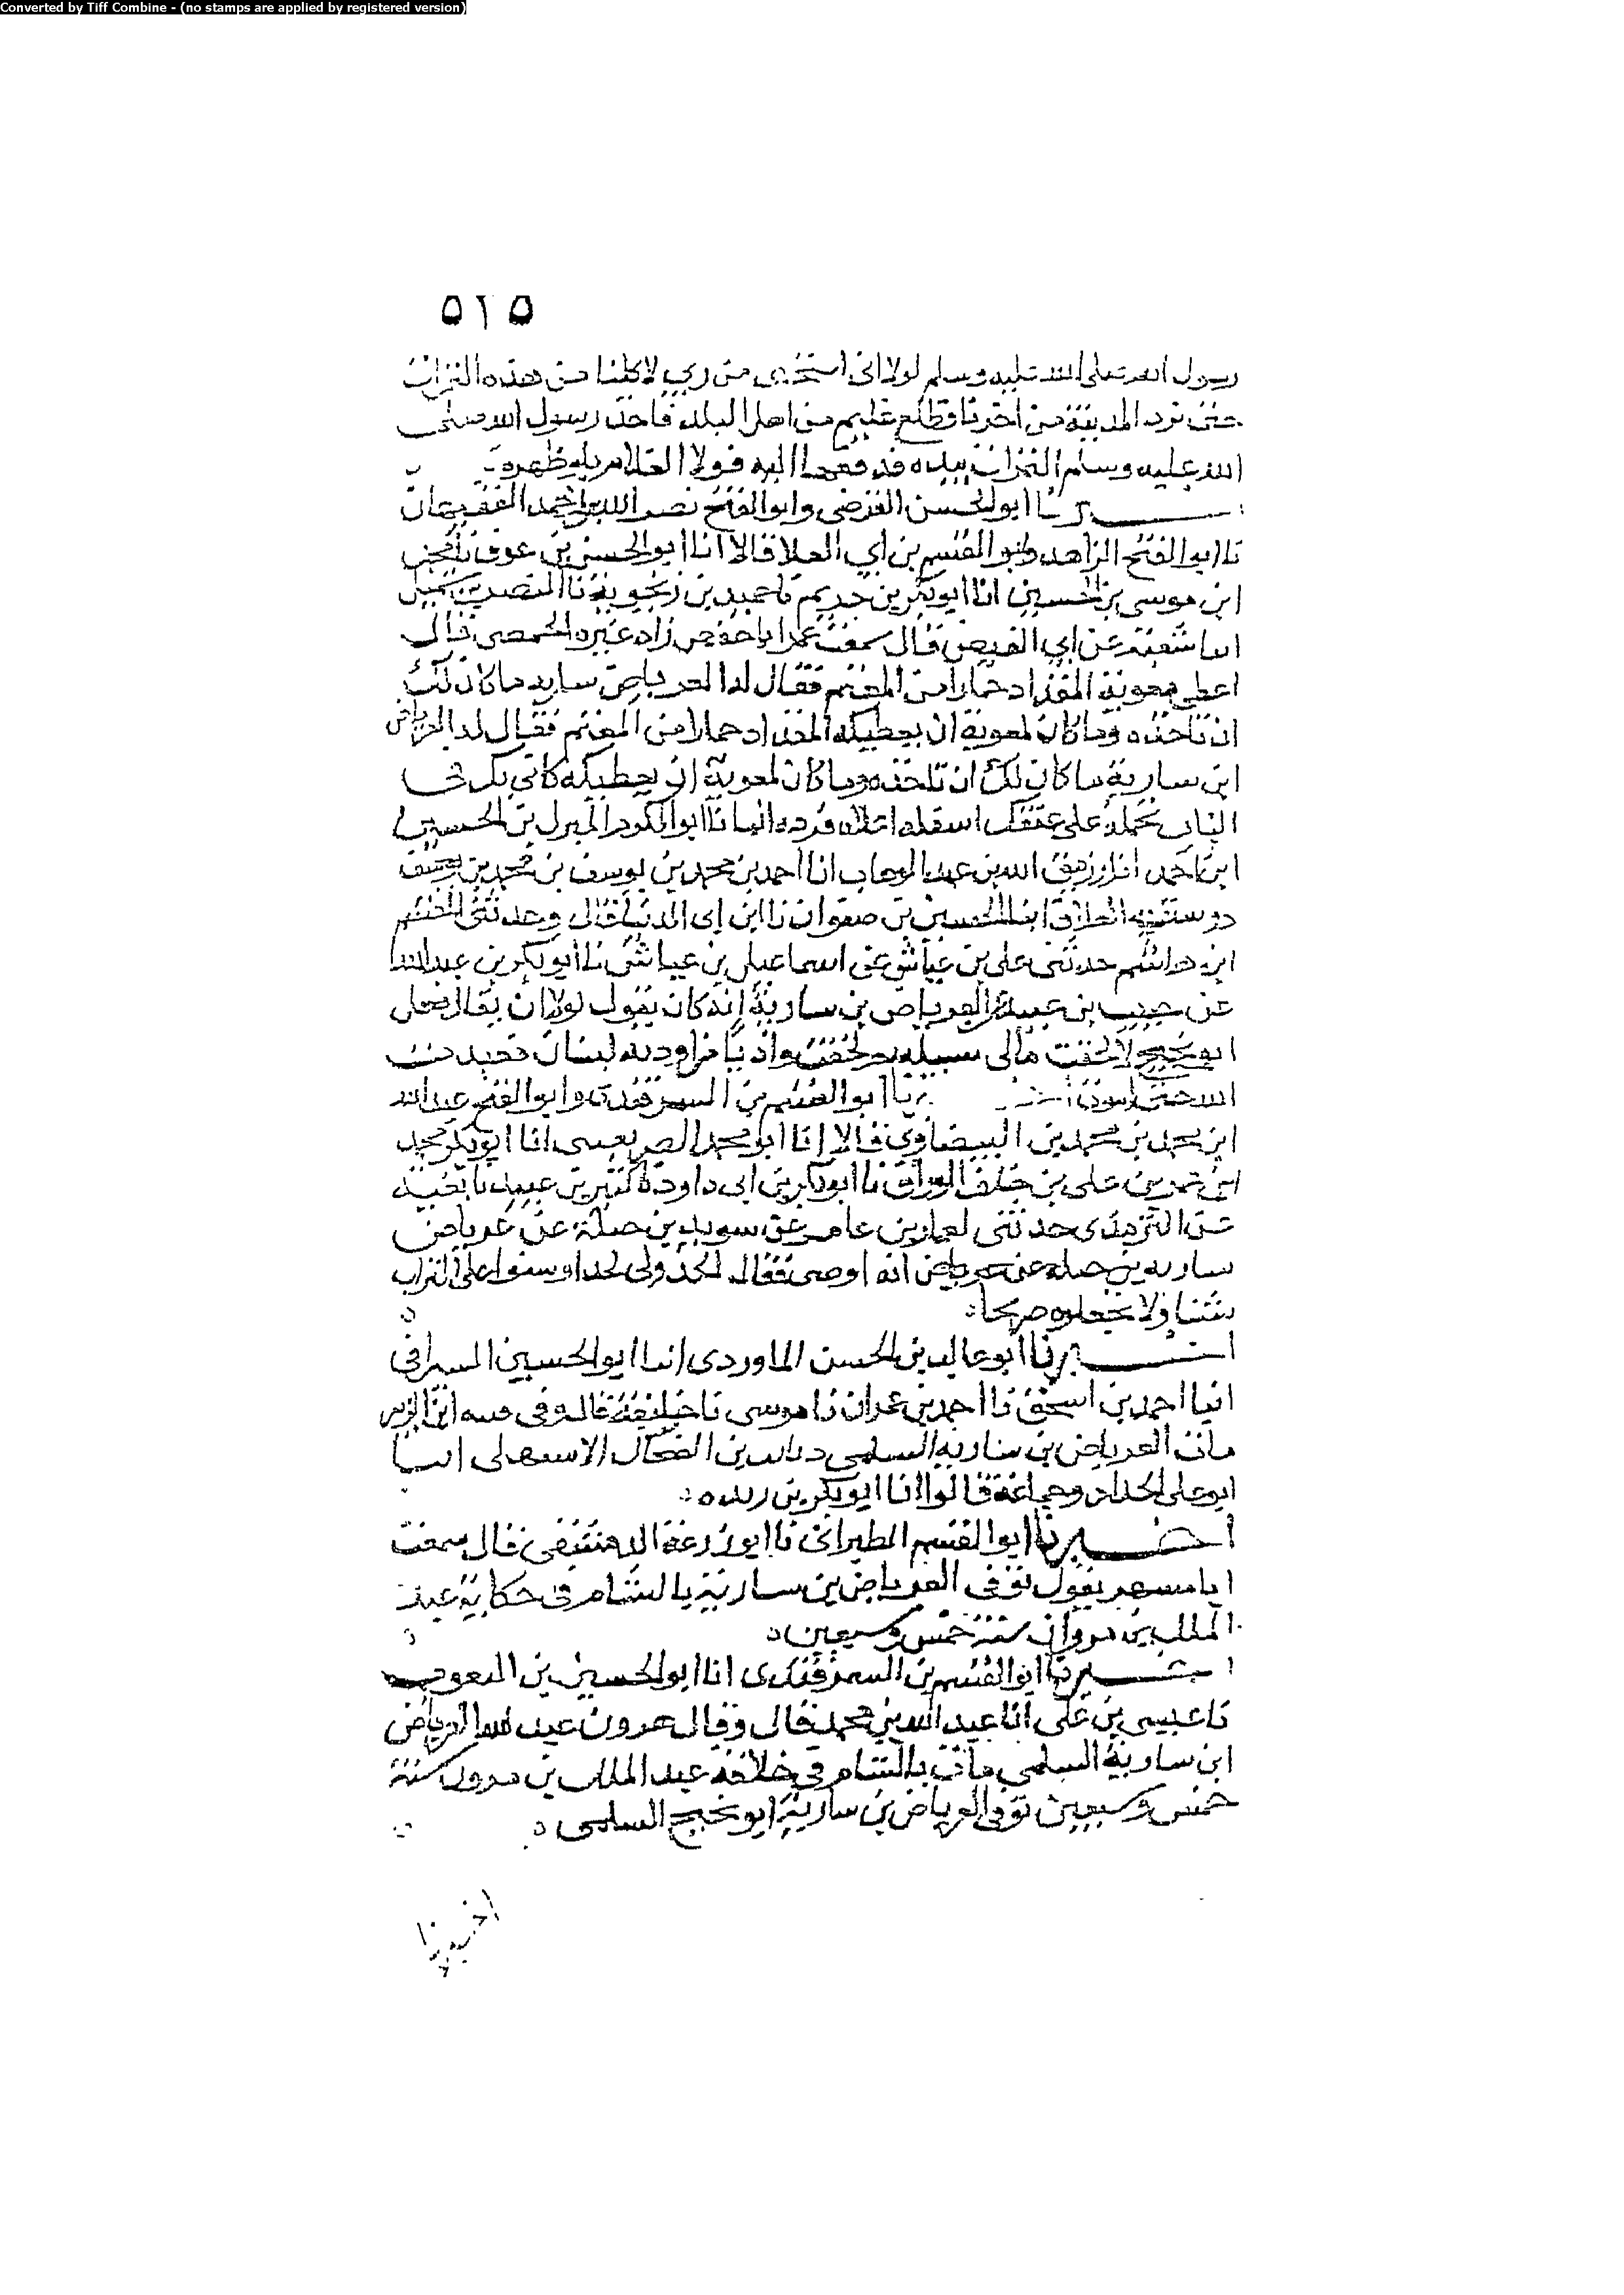 Converted by Tiff Combine - (no stamps are applied by registered version)
٥٢٥
رسول الله صلى الله عليه وسلم لولا انى استحيى من ربي لاكلنا من هذه التمرات
حتى نرد المدينة من اخرنا فطلع عليهم من اهل البلد فاخذ رسول الله صلى
الله عليه وسلم التمرات بيده فدفعها اليه فولا الغلام
ابو الحسن الفرضى وابو الفتح نصر الله بن احمد الفقيهان
نا ابو الفتح الزاهد وابو القسم بن ابي العلا قالا انا ابو الحسن بن عوف نا محمد
ابن موسى بن الحسين انا ابو بكر بن خريم نا حميد بن زنجويه نا النضر بن شميل
انبا شعبة عن ابي الفيض قال سمعت عمرا ابا حفص زاد غيره الحمصى قال
اعطى معوية المقداد حمارا من المغنم فقال له العرباض بن سارية ما كان لك
ان تاخذه وما كان لمعوية ان يعطيكه المقداد حمارا من المغنم فقال له العرباض
ابن سارية ما كان لك ان تاخذه وما كان لمعوية ان يعطيكه كاني بك في
النار تحمله على عنقك اسفله اعلاه فرده انبانا ابو المكرم المبرك بن الحسين
ابن احمد انا رزق الله بن عبد الوهاب انا احمد بن محمد بن يوسف بن محمد بن
دوست العلاف انا الحسين بن صفوان نا ابن ابى الدنيا قال وحدثنى القسم
ابن هاشم حدثنى على بن عياش عن اسماعيل بن عياش نا ابو بكر بن عبد الله
عن حبيب بن عبيد عن العرباض بن سارية انه كان يقول لولا ان يقال فعل
ابو نجيح لالحقت مالى سبيله ثم لحقت واديا من اودية لبنان فعبدت
الله حتى اموت ابو القسم بن السمرقندى وابو الفتح عبد الله
ابن محمد بن محمد بن البيضاوي قالا انا ابو محمد الصريفينى انا ابو بكر محمد
ابن عمر بن على بن خلف الوراق نا ابو بكر بن ابى داود نا كثير بن عبيد نا بقية
عن الترمذى حدثنى لعمار بن عامر عن سويد بن جبلة عن عرباض
سارية بن جبلة عن عرباض انه اوصى فقال الحدوا لى لحدا وسنوا على التراب
سنا ولا تجعلوه ضريحا
اخبرنا ابو غالب بن الحسن الماوردى انبا ابو الحسين السيرافى
انبا احمد بن اسحق نا احمد بن عمران نا موسى نا خليفة قال وفى فتنة ابن الزبير
مات العرباض بن سارية السلمى وثابت بن الضحاك الاشهلى انبا
ابو على الحداد وجماعة قالوا انا ابو بكر بن ريذه
اخبرنا ابو القسم الطبرانى نا ابو زرعة الدمشقى قال سمعت
ابا مسهر يقول توفى العرباض بن سارية بالشام فى خلافة عبد
الملك بن مروان سنة خمس وسبعين
اخبرنا ابو القسم بن السمرقندى انا ابو الحسين بن النقور
نا عيسى بن على انا عبد الله بن محمد قال وقال هرون عبد الله العرباض
ابن سارية السلمي مات بالشام في خلافة عبد الملك بن مرون سنة
خمس وسبعين توفي العرباض بن سارية ابو نجيح السلمى
اخبرنا